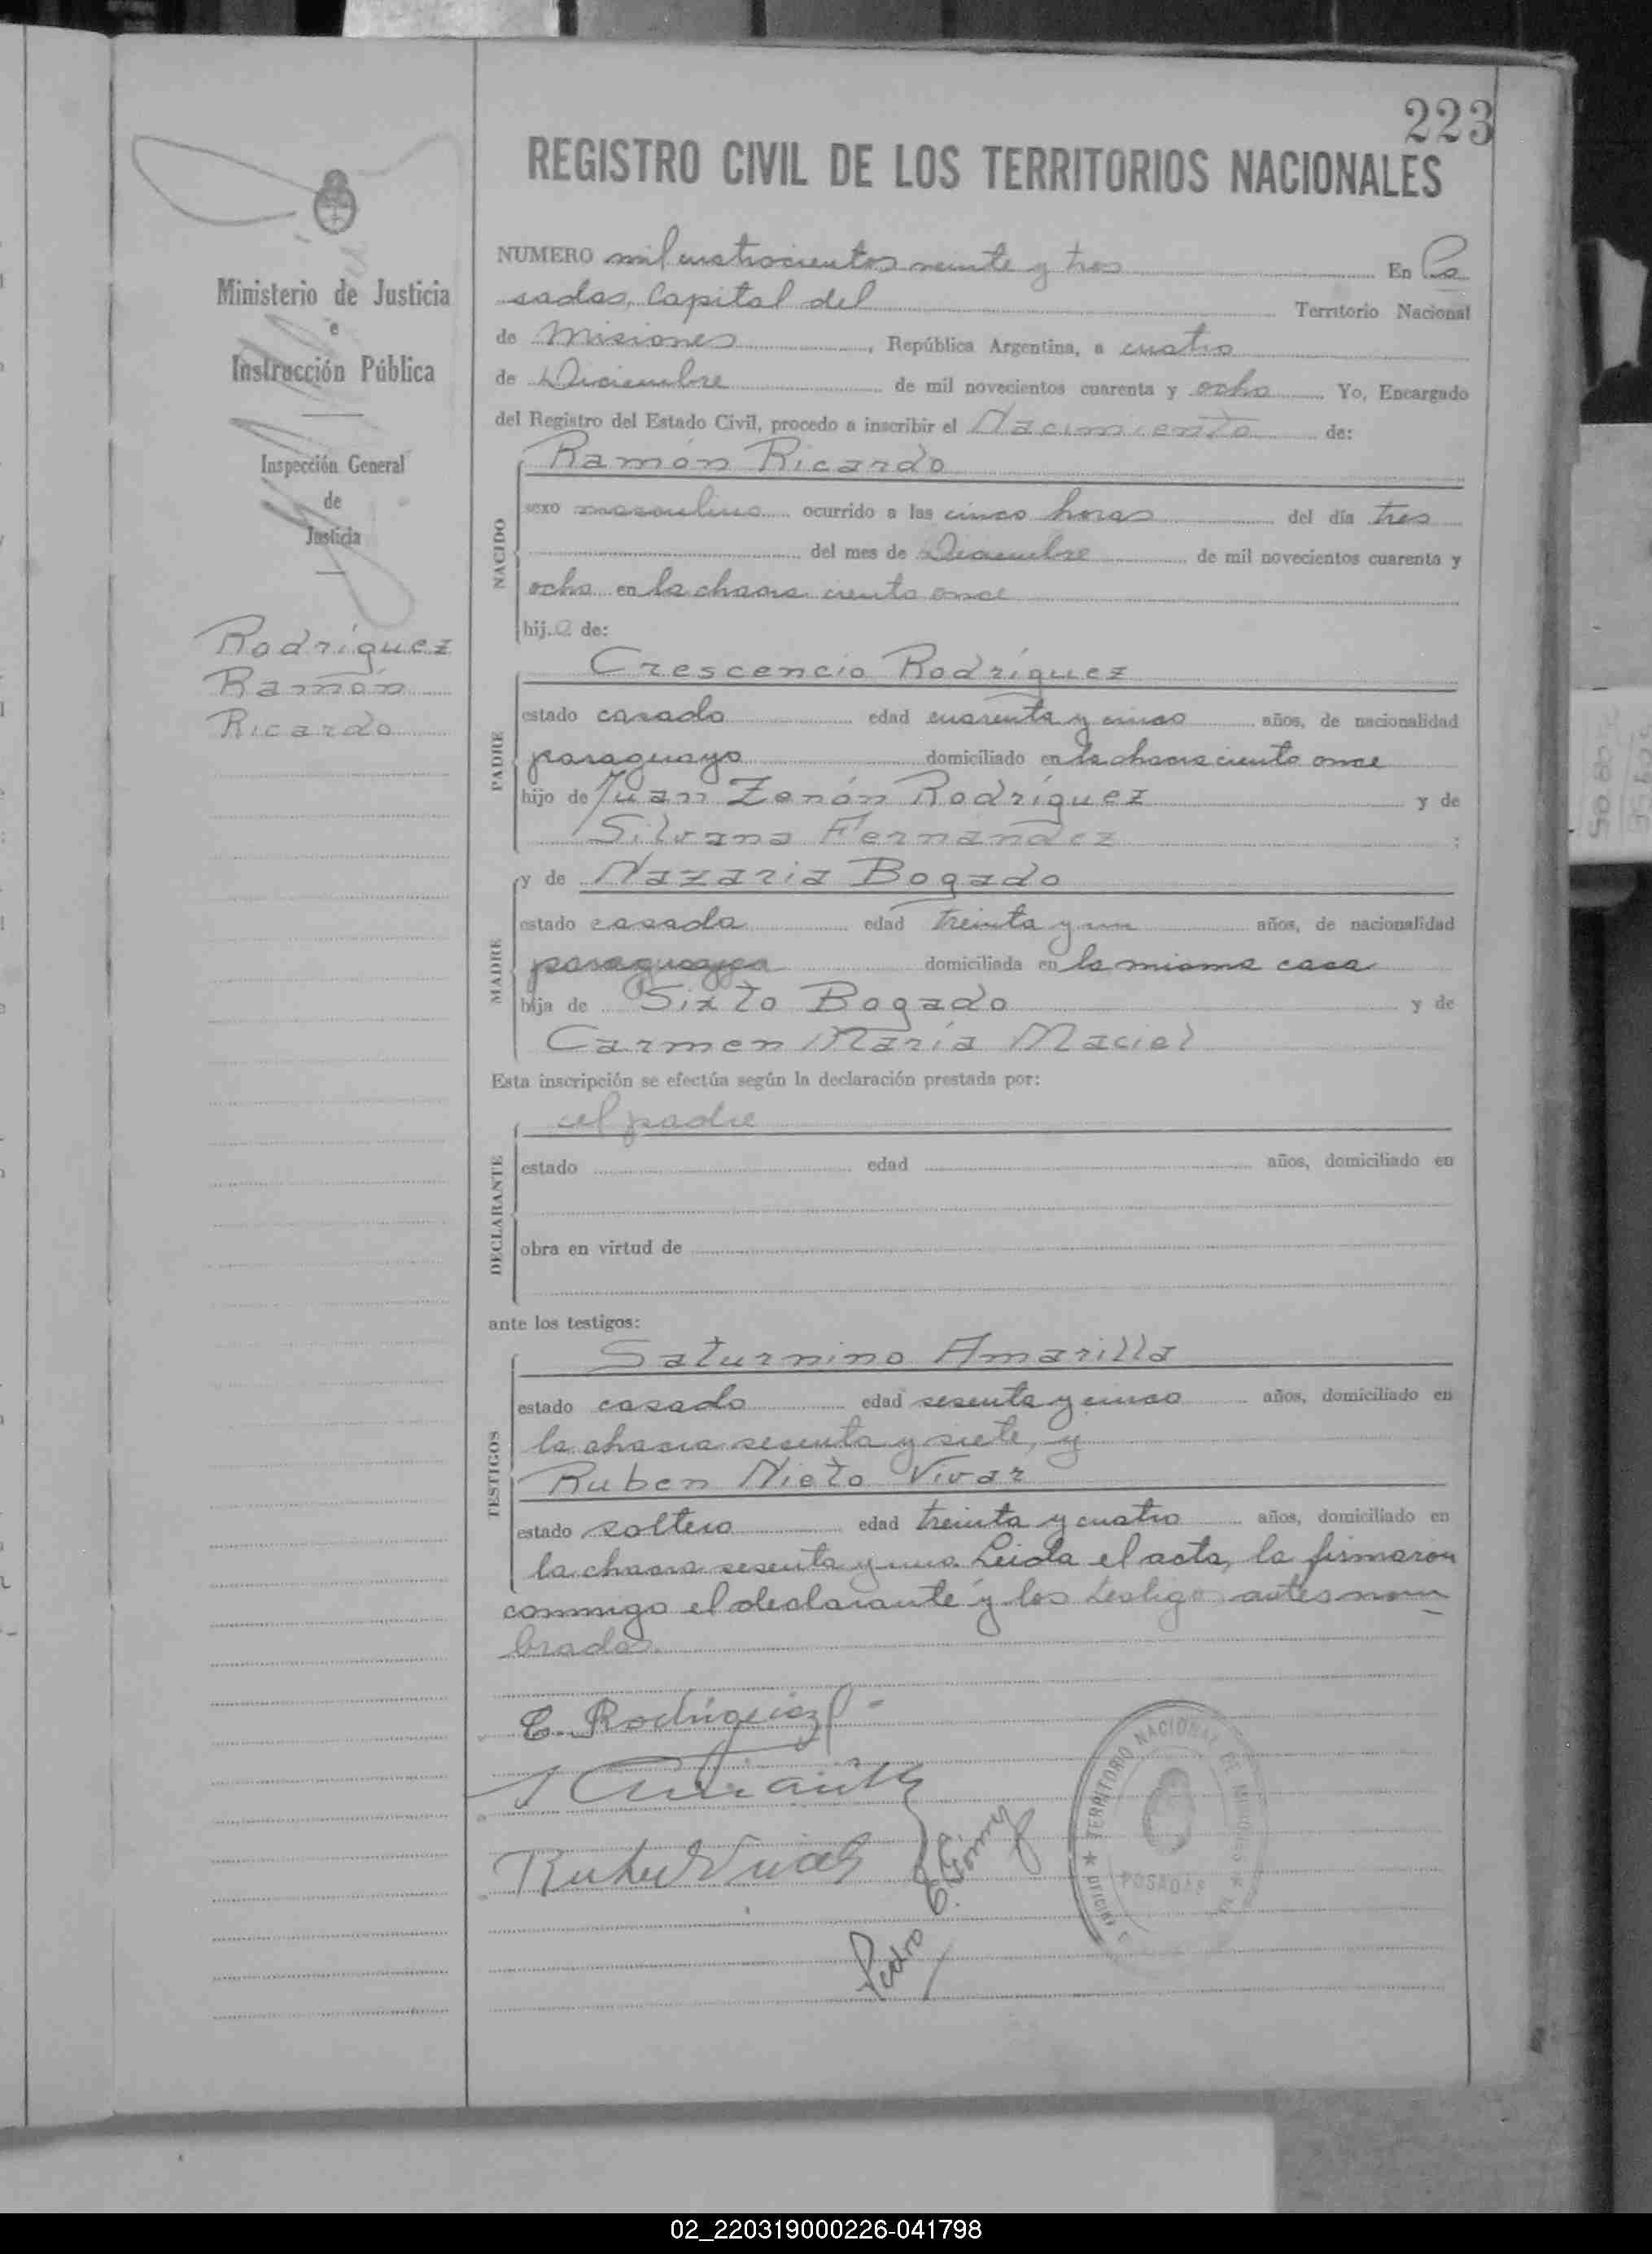 223
REGISTRO CIVIL DE LOS TERRITORIOS NACIONALES
Ministerio de Justicia
e
Instrucción Pública
Inspección General
de
Justicia
Rodríguez
Ramón
Ricardo
NUMERO mil cuatrocientos veinte y tres En Po
sadas, Capital del Territorio Nacional
de Misiones, República Argentina, a cuatro
de Diciembre de mil novecientos cuarenta y ocho Yo, Encargado
del Registro del Estado Civil, procedo a inscribir el Nacimiento de:
NACIDO
Ramón Ricardo
sexo masculino ocurrido a las cinco horas del día tres
del mes de Diciembre de mil novecientos cuarenta y
ocho en la chacra ciento once
hijo de:
PADRE
Crescencio Rodríguez
estado casado edad cuarenta y cinco años, de nacionalidad
paraguayo domiciliado en la chacra ciento once
hijo de Juan Zenón Rodríguez y de
Silvana Fernández ;
MADRE
y de Nazaria Bogado
estado casada edad treinta y un años, de nacionalidad
paraguaya domiciliada en la misma casa
hija de Sixto Bogado y de
Carmen María Maciel
Esta inscripción se efectúa según la declaración prestada por:
DECLARANTE
el padre
estado edad años, domiciliado en
obra en virtud de
ante los testigos:
TESTIGOS
Saturnino Amarilla
estado casado edad sesenta y cinco años, domiciliado en
la chacra sesenta y siete, y
Ruben Nieto Vivar
estado soltero edad treinta y cuatro años, domiciliado en
la chacra sesenta y una. Leida el acta, la firmaron
conmigo el declarante y los testigos antes nom
brados.
C. Rodríguez
Pedro E. Gómez
TERRITORIO NACIONAL DE MISIONES
POSADAS
02_220319000226-041798